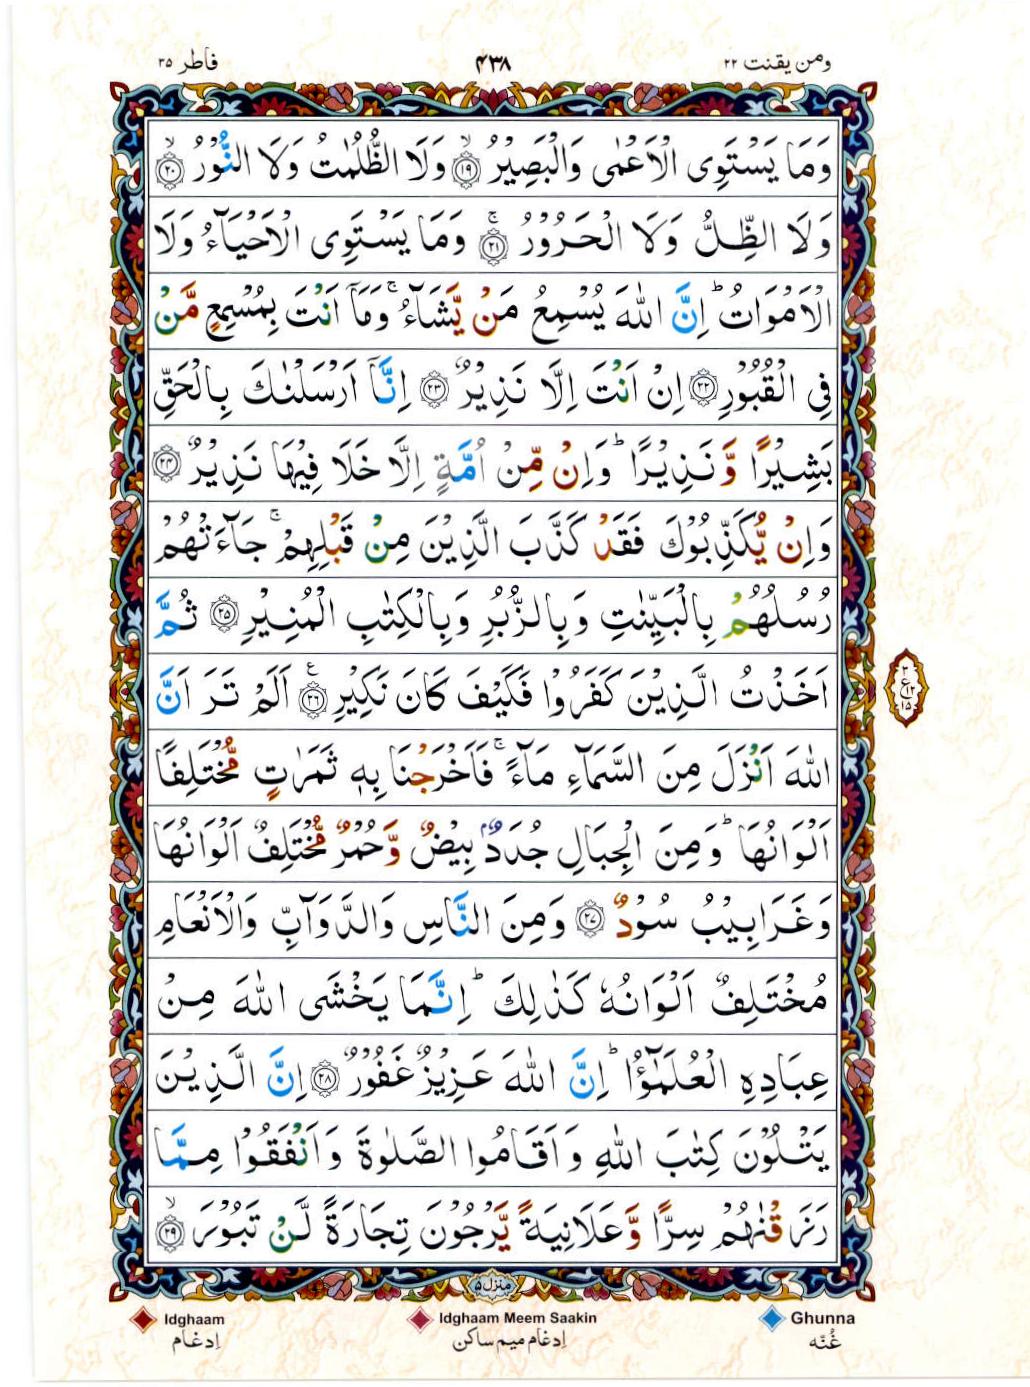 ومن یقنت ۲۲
۴۳۸
فاطر ۳۵
وَمَا يَسْتَوِى الْاَعْمٰى وَالْبَصِيْرُ ۙ﴿۱۹﴾ وَلَا الظُّلُمٰتُ وَلَا النُّوْرُ ۙ﴿۲۰﴾
وَلَا الظِّلُّ وَلَا الْحَرُوْرُ ۚ﴿۲۱﴾ وَمَا يَسْتَوِى الْاَحْيَآءُ وَلَا
الْاَمْوَاتُ ؕ اِنَّ اللّٰهَ يُسْمِعُ مَنْ يَّشَآءُ ۚ وَمَاۤ اَنْتَ بِمُسْمِعٍ مَّنْ
فِى الْقُبُوْرِ ﴿۲۲﴾ اِنْ اَنْتَ اِلَّا نَذِيْرٌ ﴿۲۳﴾ اِنَّاۤ اَرْسَلْنٰكَ بِالْحَقِّ
بَشِيْرًا وَّ نَذِيْرًا ؕ وَاِنْ مِّنْ اُمَّةٍ اِلَّا خَلَا فِيْهَا نَذِيْرٌ ﴿۲۴﴾
وَاِنْ يُّكَذِّبُوْكَ فَقَدْ كَذَّبَ الَّذِيْنَ مِنْ قَبْلِهِمْ ۚ جَآءَتْهُمْ
رُسُلُهُمْ بِالْبَيِّنٰتِ وَبِالزُّبُرِ وَبِالْكِتٰبِ الْمُنِيْرِ ﴿۲۵﴾ ثُمَّ
اَخَذْتُ الَّذِيْنَ كَفَرُوْا فَكَيْفَ كَانَ نَكِيْرِ ﴿۲۶﴾ ع اَلَمْ تَرَ اَنَّ
اللّٰهَ اَنْزَلَ مِنَ السَّمَآءِ مَآءً ۚ فَاَخْرَجْنَا بِهٖ ثَمَرٰتٍ مُّخْتَلِفًا
اَلْوَانُهَا ؕ وَمِنَ الْجِبَالِ جُدَدٌۢ بِيْضٌ وَّحُمْرٌ مُّخْتَلِفٌ اَلْوَانُهَا
وَغَرَابِيْبُ سُوْدٌ ﴿۲۷﴾ وَمِنَ النَّاسِ وَالدَّوَآبِّ وَالْاَنْعَامِ
مُخْتَلِفٌ اَلْوَانُهٗ كَذٰلِكَ ؕ اِنَّمَا يَخْشَى اللّٰهَ مِنْ
عِبَادِهِ الْعُلَمٰٓؤُا ؕ اِنَّ اللّٰهَ عَزِيْزٌ غَفُوْرٌ ﴿۲۸﴾ اِنَّ الَّذِيْنَ
يَتْلُوْنَ كِتٰبَ اللّٰهِ وَاَقَامُوا الصَّلٰوةَ وَاَنْفَقُوْا مِمَّا
رَزَقْنٰهُمْ سِرًّا وَّعَلَانِيَةً يَّرْجُوْنَ تِجَارَةً لَّنْ تَبُوْرَ ۙ﴿۲۹﴾
ع
۱۲
۱۵
منزل ۵
Idghaam
Idghaam Meem Saakin
Ghunna
اِدغام
اِدغام میم ساکن
غُنّه